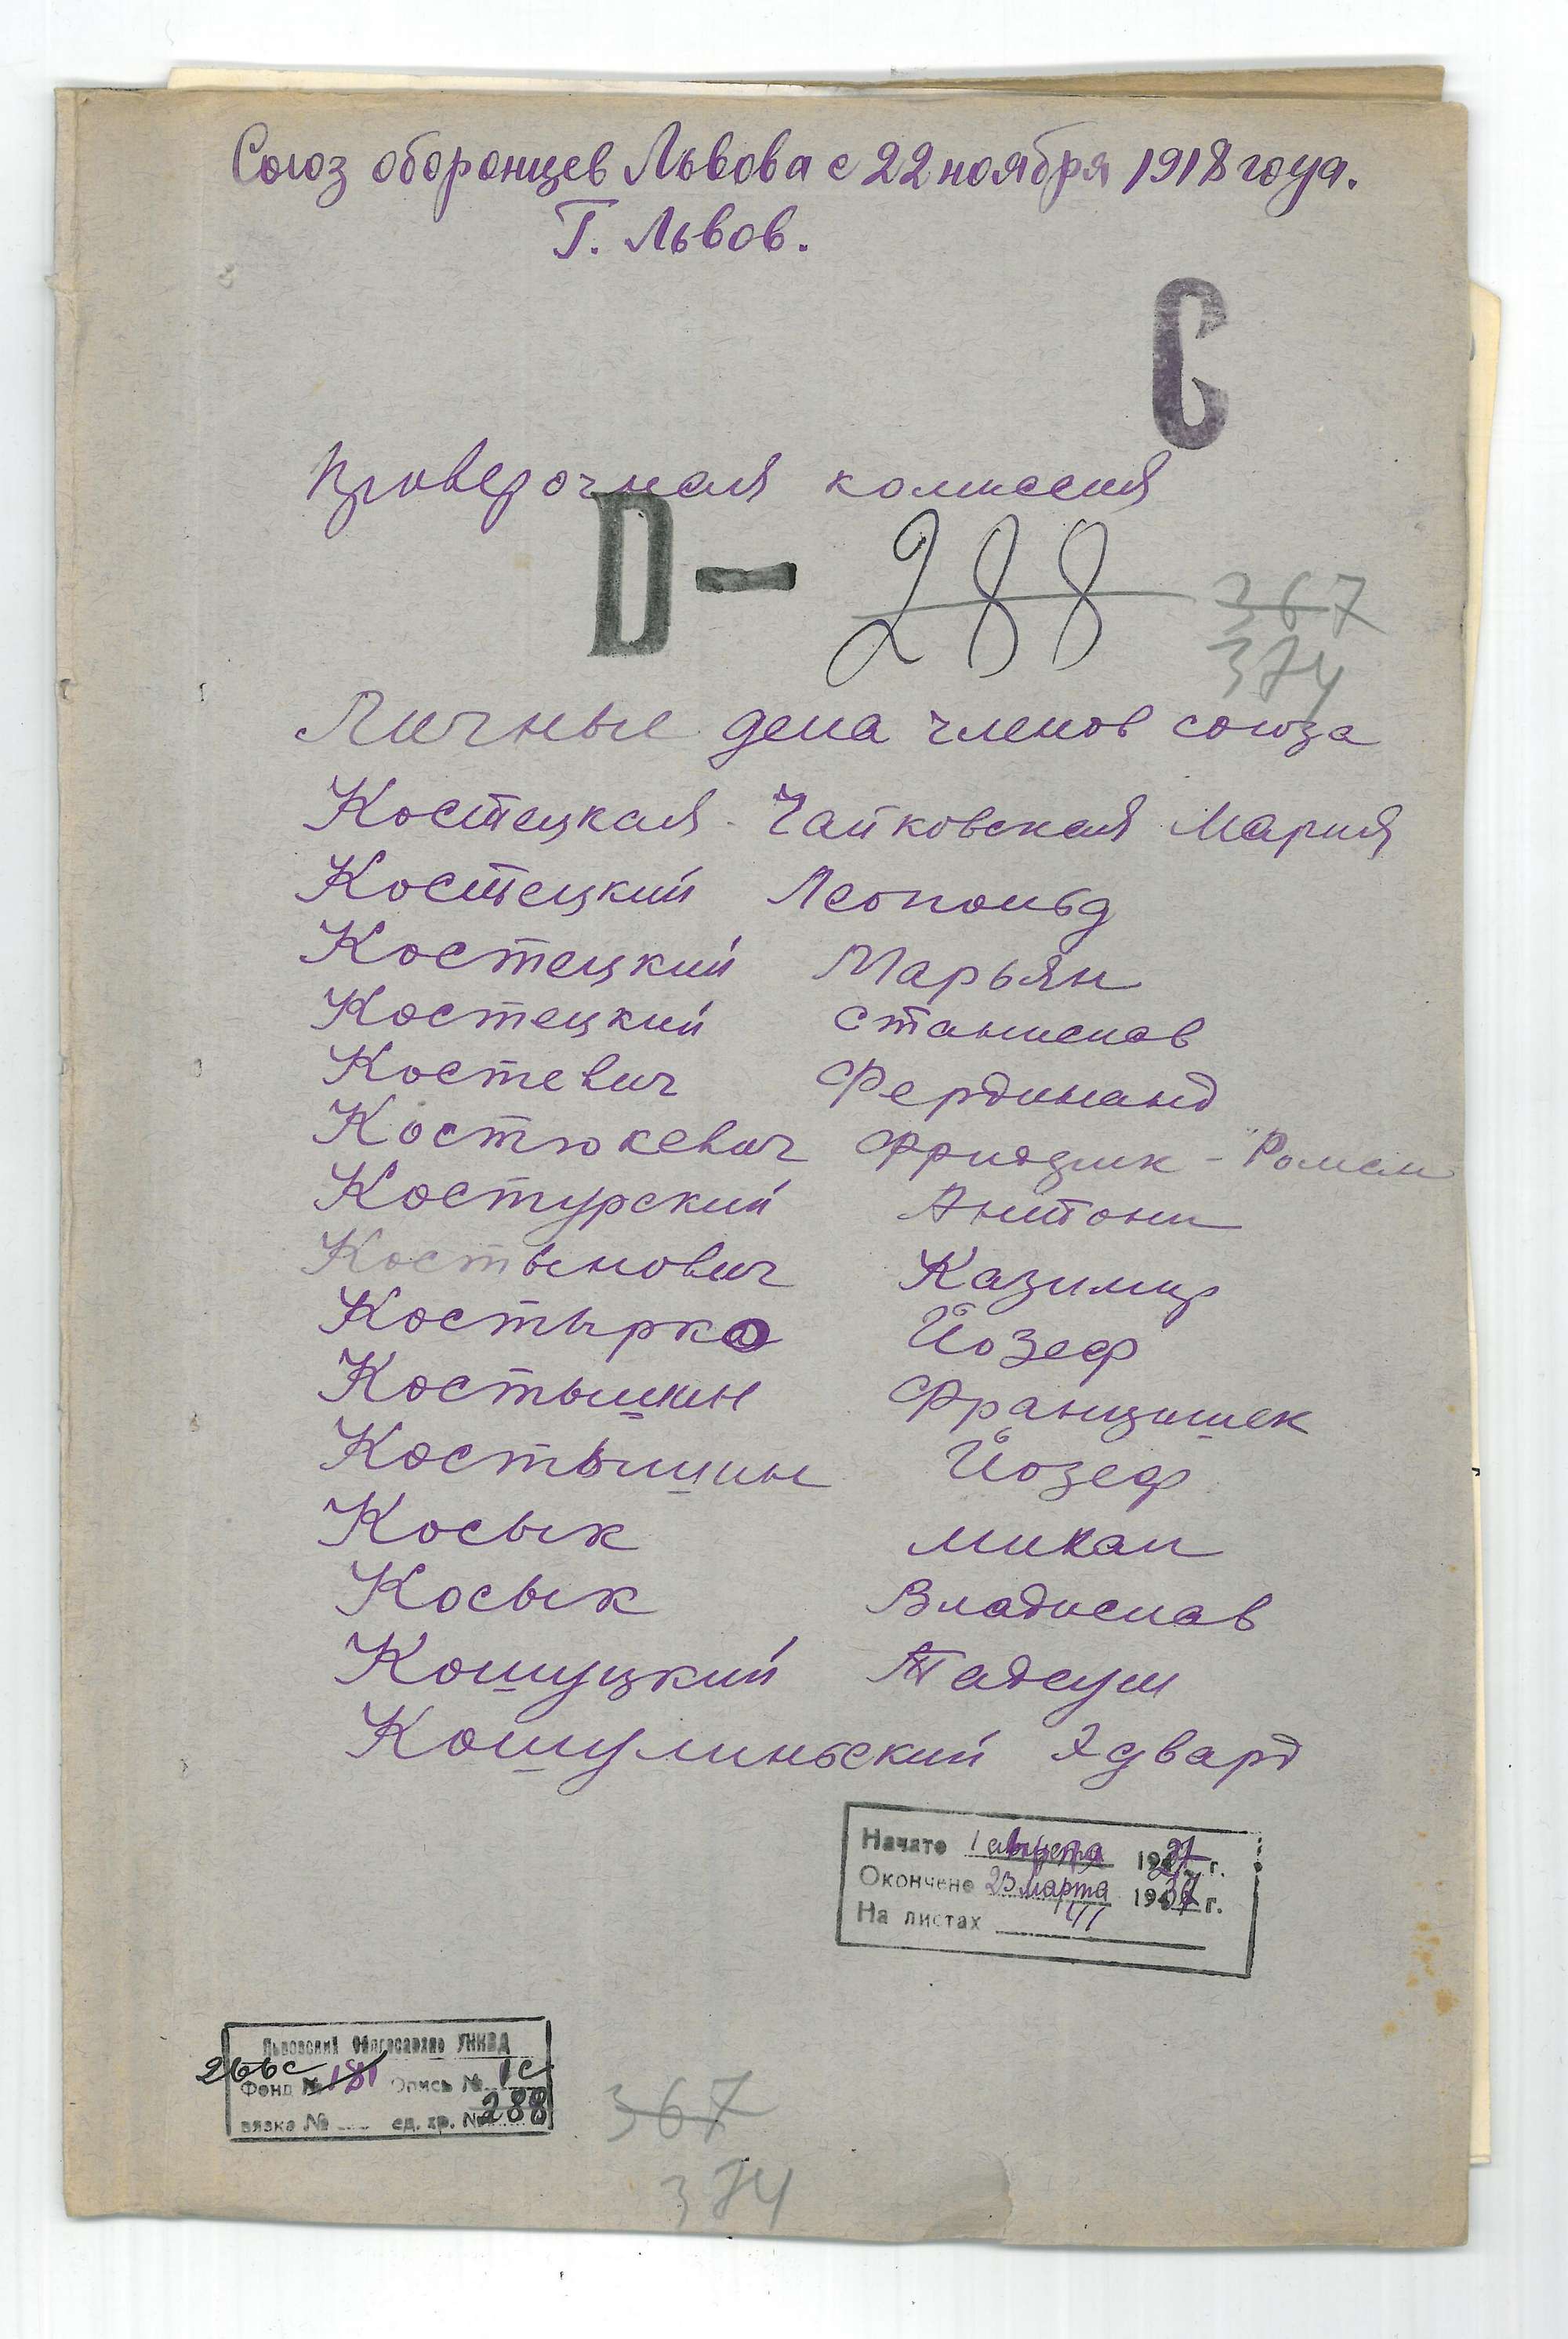 Союз оборонцев Львова с 22 ноября 1918 года.
Г. Львов.
С
Проверочная комиссия
D— 288 367
374
Личные дела членов союза
Костецкая - Чайковская Мария
Костецкий Леопольд
Костецкий Марьян
Костецкий Станислав
Костевич Фердинанд
Костюкевич Фридрик - Роман
Костурский Антони
Костынович Казимир
Костырко Йозеф
Костышин Францишек
Костышин Йозеф
Косык Михал
Косык Владислав
Кошуцкий Тадеуш
Кошулиньский Эдвард
Начато 1 августа 1927 г.
Окончено 23 марта 1937 г.
На листах 141
Львовский Облгосархив УНКВД
266с
Фонд № 181 Опись № 1с
вязка № ед. хр. № 288
367
374